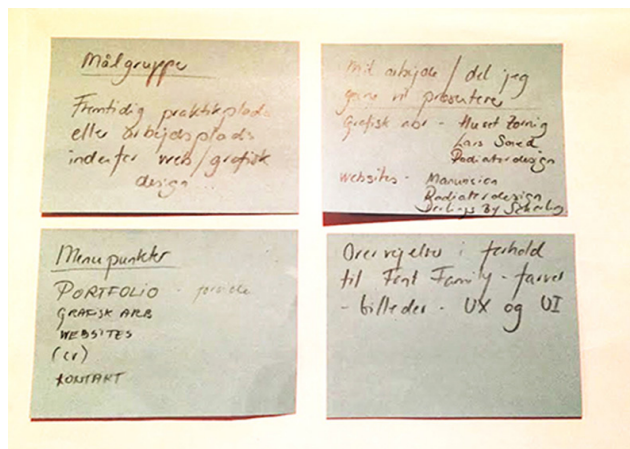 Målgruppe
Fremtidig praktikplads
eller arbejdsplads
indenfor web/grafisk
design...
Mit arbejde / det jeg
gerne vil præsentere
Grafisk - Huset Zornig
Lars
Radiatordesign
websites -
Radiatordesign
By
Menupunkter
PORTFOLIO - forside
GRAFISK ARB
WEBSITES
(CV)
KONTAKT
Overvejelser i forhold
til Font Family - farver
- billeder - UX og UI